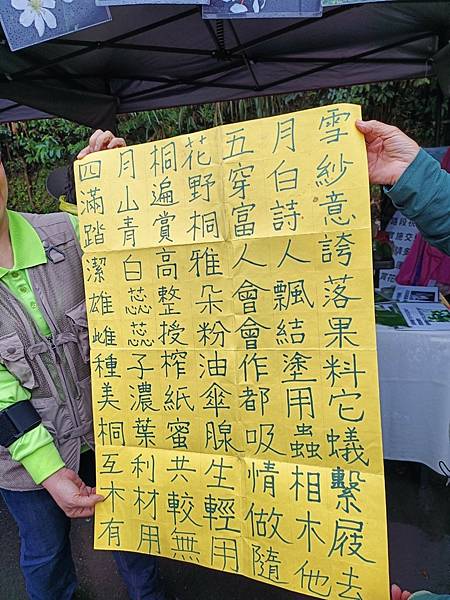 四月桐花五月雪
滿山遍野穿白紗
踏青賞桐富詩意
潔白高雅人人誇
雄蕊整朵會飄落
雌蕊授粉會結果
種子榨油作塗料
美濃紙傘都用它
桐葉蜜腺吸蟲蟻
互利共生情相繫
木材較輕做木屐
有用無用隨他去